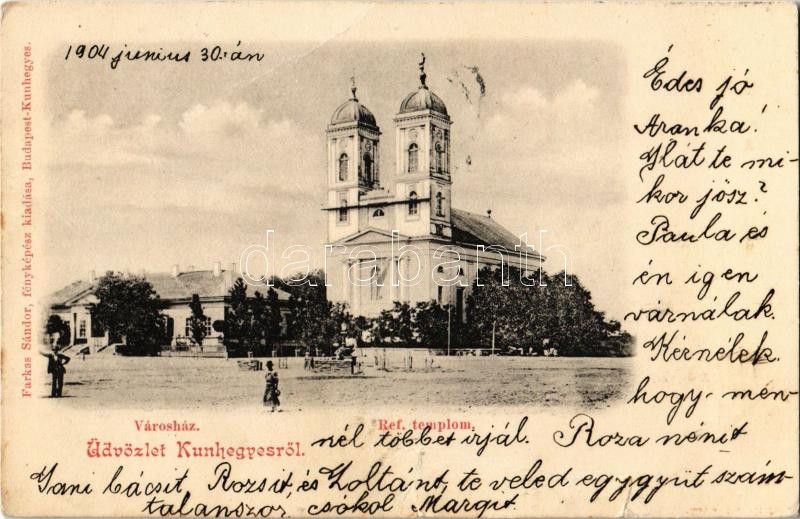 1904 junius 30-án
Édes jó
Aranka!
Hát te mi-
kor jösz?
Paula és
én igen
várnálak.
Kérnélek
hogy men-
nél többet irjál. Roza nénit
Jani bácsit Rozsit, és Zoltánt, te veled eggyüt szám-
talanszor csókol Margit
Városház.
Ref. templom.
Üdvözlet Kunhegyesről.
Farkas Sándor, fényképész kiadása, Budapest-Kunhegyes.
darabanth